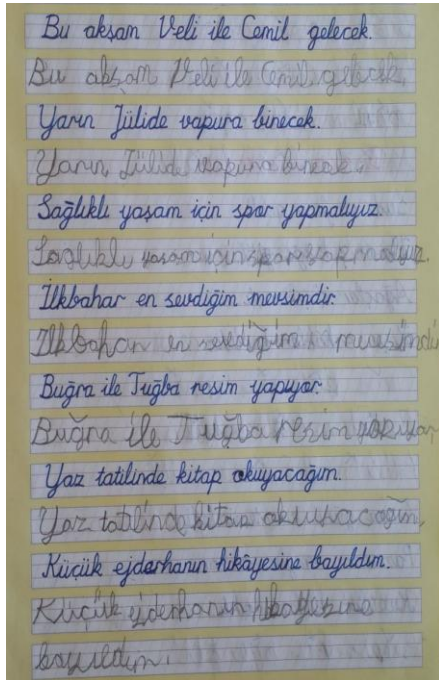 Bu akşam Veli ile Cemil gelecek.
Bu akşam Veli ile Cemil gelecek.
Yarın Jülide vapura binecek.
Yarın Jülide vapura binecek.
Sağlıklı yaşam için spor yapmalıyız.
Sağlıklı yaşam için spor yapmalıyız.
İlkbahar en sevdiğim mevsimdir.
İlkbahar en sevdiğim mevsimdir
Buğra ile Tuğba resim yapıyor.
Buğra ile Tuğba resim yapıyor
Yaz tatilinde kitap okuyacağım.
Yaz tatilinde kitap okuyacağım.
Küçük ejderhanın hikâyesine bayıldım.
Küçük ejderhanın
bayıldım.